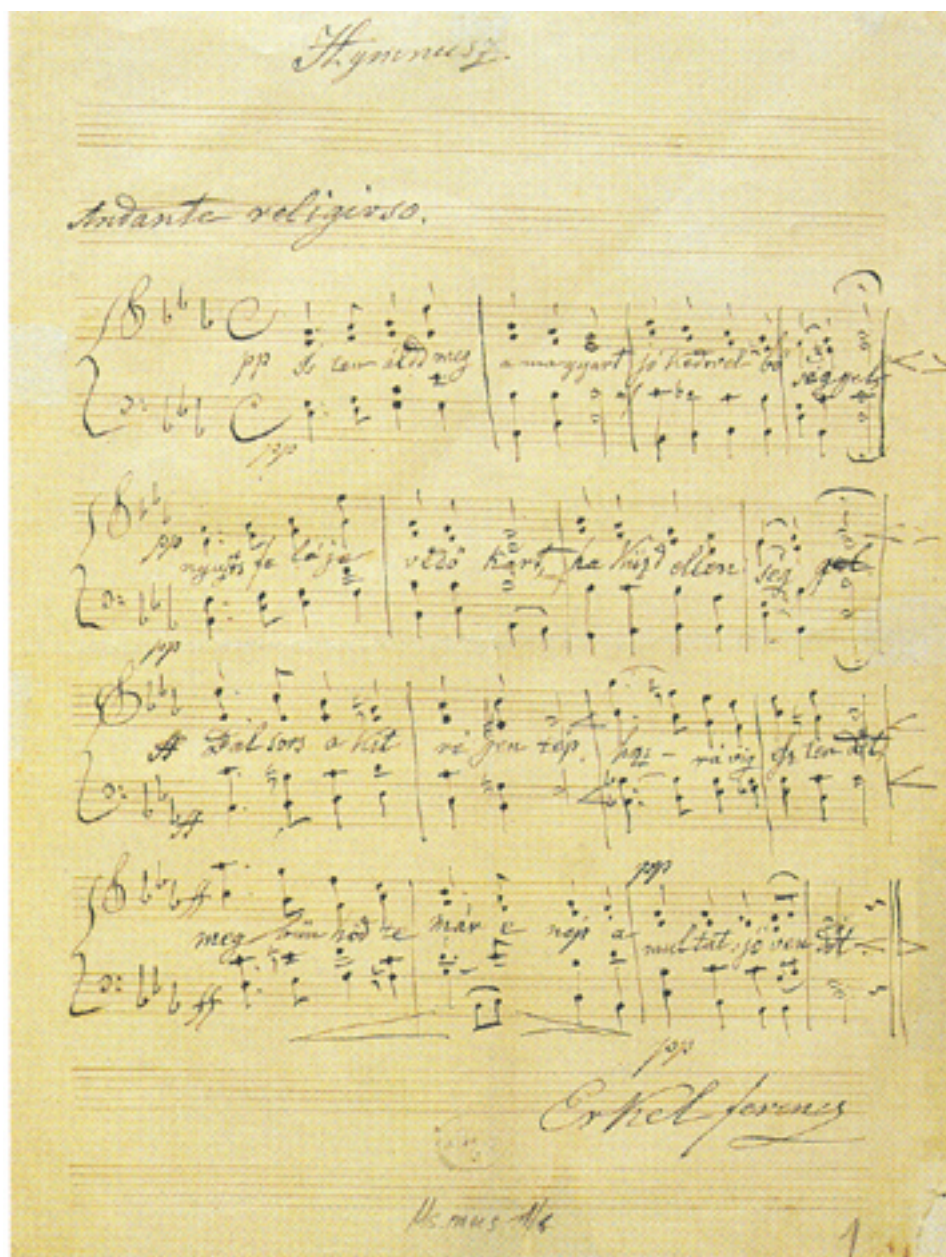 Hymnusz.
Andante religioso.
pp Is ten áldd meg a magyart jó kedvvel bő séggel
pp
pp nyujts fe lé je védő kart, ha küzd ellen ség gel
pp
ff Bal sors a kit ré gen tép, hoz - rá víg esz ten dőt,
ff
pp
ff meg bűn hőd te már e nép a multat, jö ven dőt
ff
pp
Erkel ferencz
Ms. mus
1